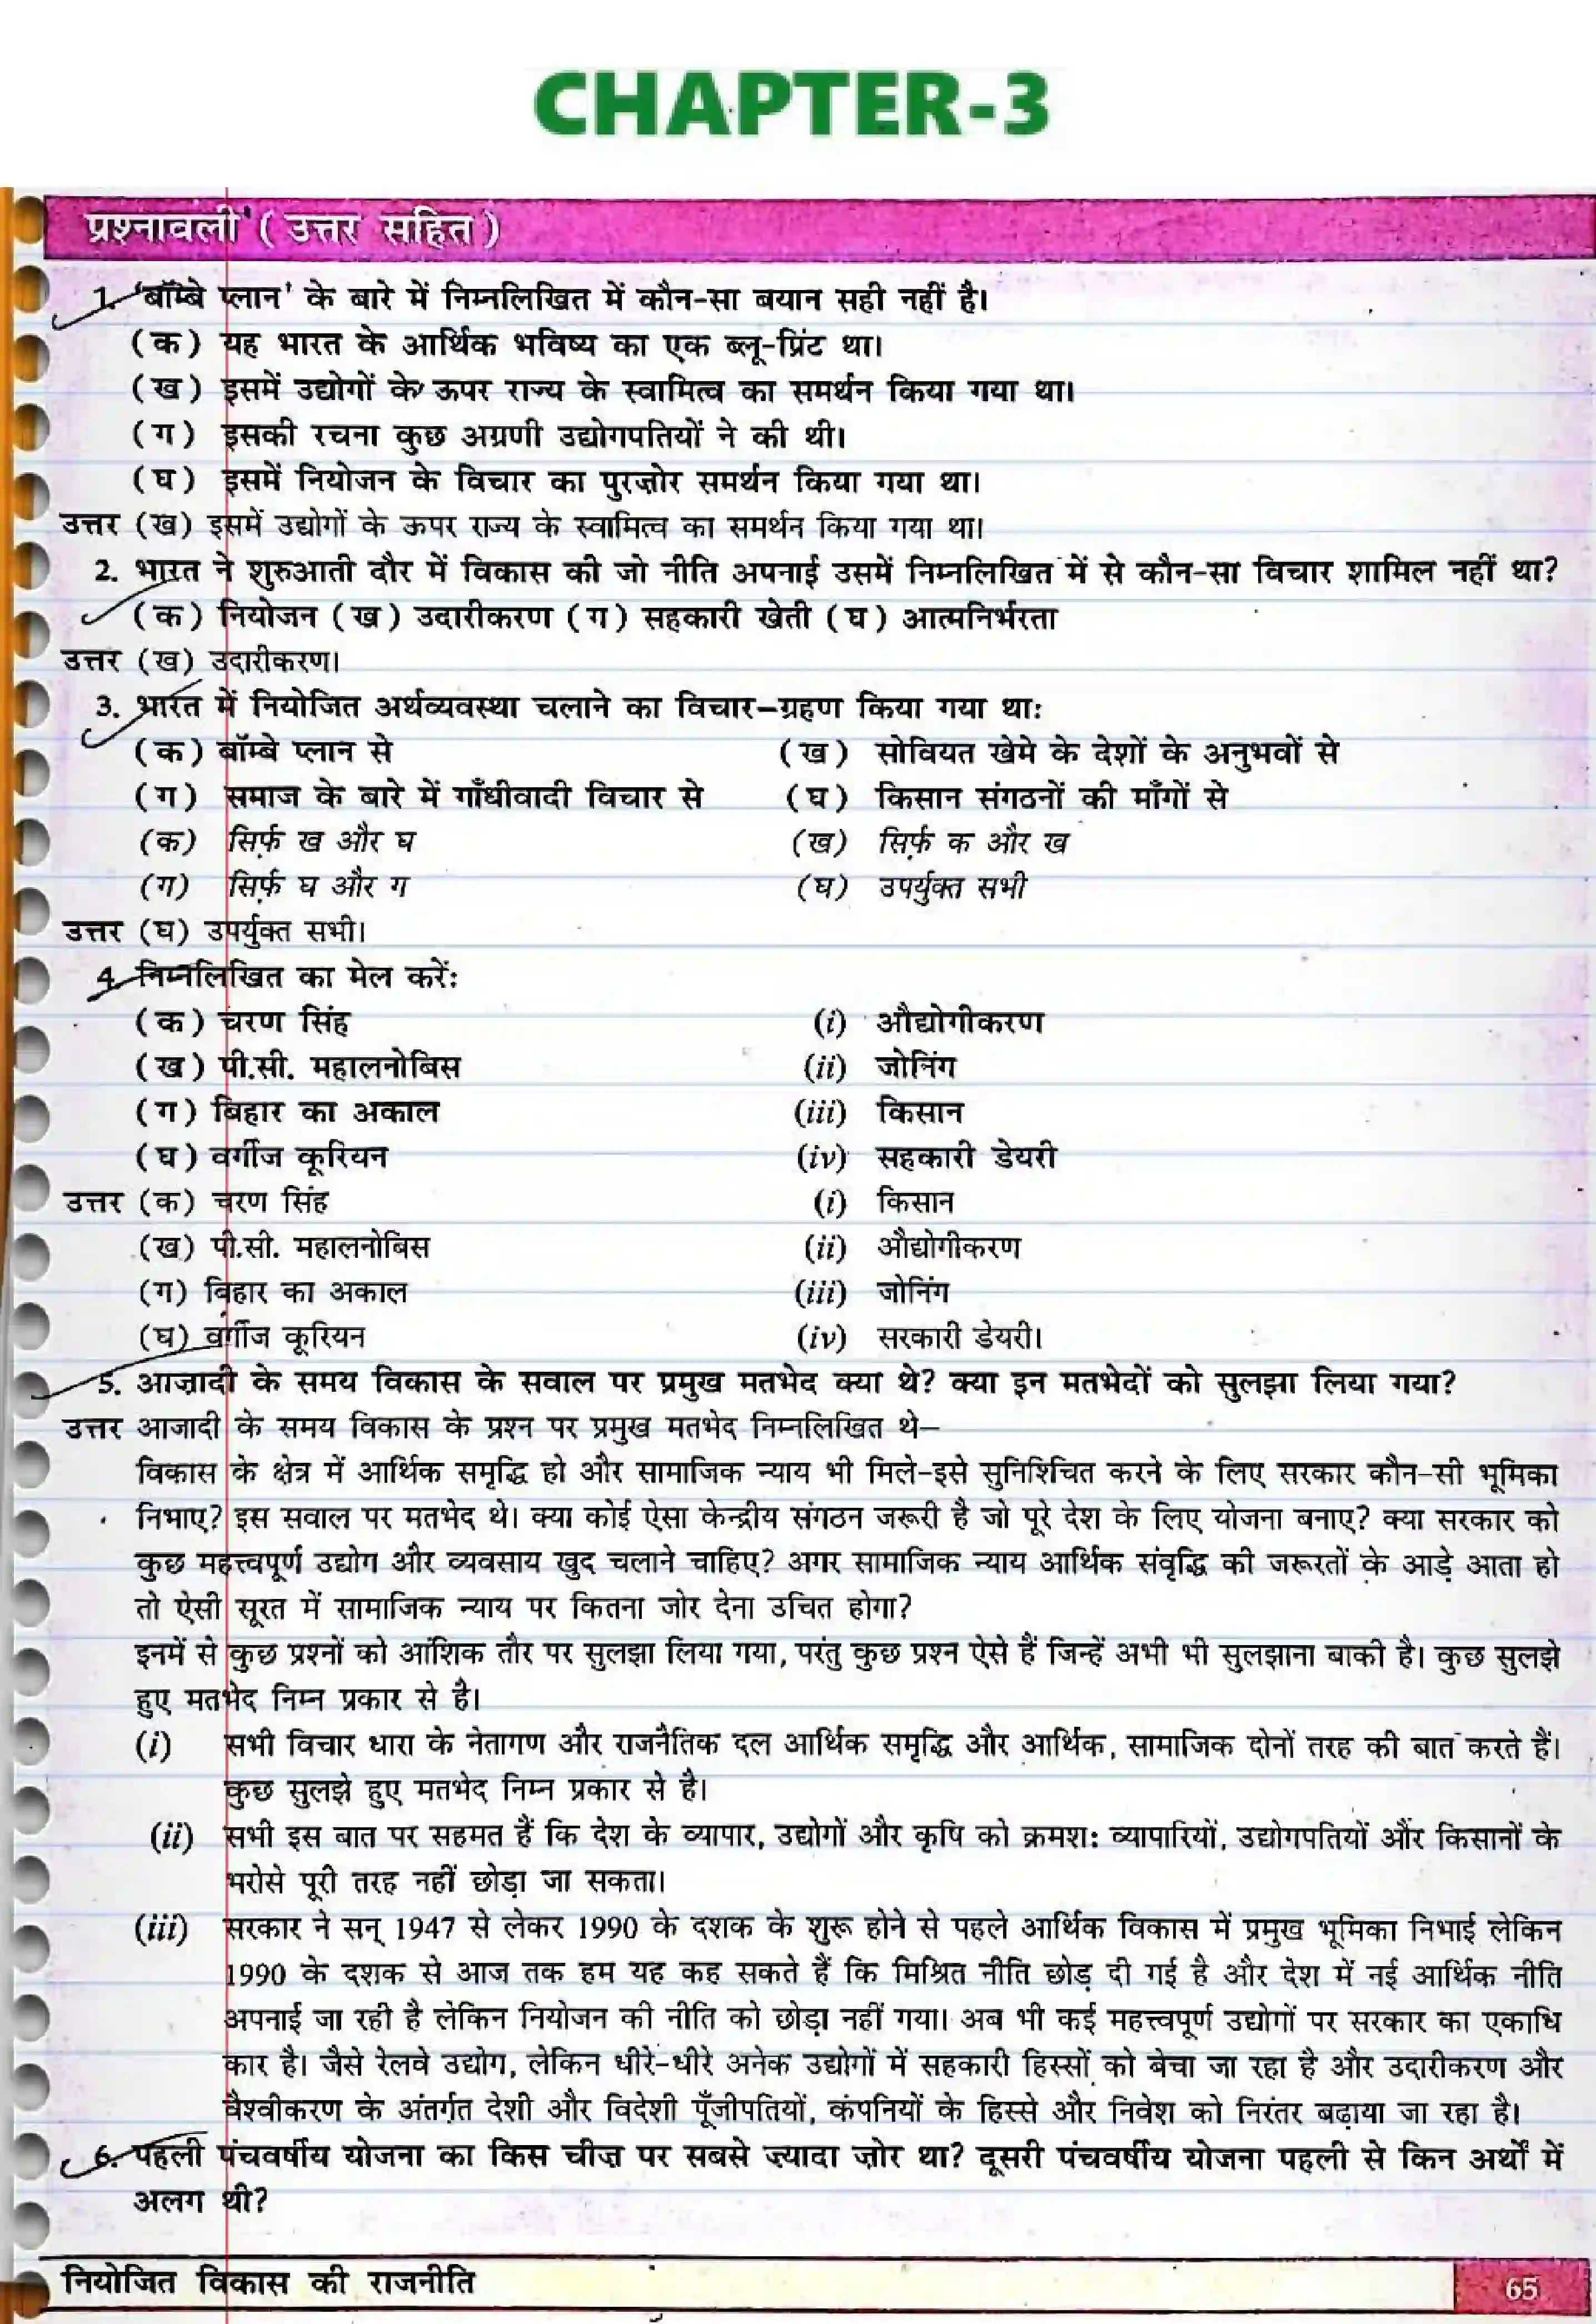 CHAPTER-3
प्रश्नावली ( उत्तर सहित )
1. 'बॉम्बे प्लान' के बारे में निम्नलिखित में कौन-सा बयान सही नहीं है।
(क) यह भारत के आर्थिक भविष्य का एक ब्लू-प्रिंट था।
(ख) इसमें उद्योगों के ऊपर राज्य के स्वामित्व का समर्थन किया गया था।
(ग) इसकी रचना कुछ अग्रणी उद्योगपतियों ने की थी।
(घ) इसमें नियोजन के विचार का पुरज़ोर समर्थन किया गया था।
उत्तर (ख) इसमें उद्योगों के ऊपर राज्य के स्वामित्व का समर्थन किया गया था।
2. भारत ने शुरुआती दौर में विकास की जो नीति अपनाई उसमें निम्नलिखित में से कौन-सा विचार शामिल नहीं था?
(क) नियोजन (ख) उदारीकरण (ग) सहकारी खेती (घ) आत्मनिर्भरता
उत्तर (ख) उदारीकरण।
3. भारत में नियोजित अर्थव्यवस्था चलाने का विचार–ग्रहण किया गया था:
(क) बॉम्बे प्लान से (ख) सोवियत खेमे के देशों के अनुभवों से
(ग) समाज के बारे में गाँधीवादी विचार से (घ) किसान संगठनों की माँगों से
(क) सिर्फ़ ख और घ (ख) सिर्फ़ क और ख
(ग) सिर्फ़ घ और ग (घ) उपर्युक्त सभी
उत्तर (घ) उपर्युक्त सभी।
4. निम्नलिखित का मेल करें:
(क) चरण सिंह (i) औद्योगीकरण
(ख) पी.सी. महालनोबिस (ii) जोनिंग
(ग) बिहार का अकाल (iii) किसान
(घ) वर्गीज कूरियन (iv) सहकारी डेयरी
उत्तर (क) चरण सिंह (i) किसान
(ख) पी.सी. महालनोबिस (ii) औद्योगीकरण
(ग) बिहार का अकाल (iii) जोनिंग
(घ) वर्गीज कूरियन (iv) सरकारी डेयरी।
5. आज़ादी के समय विकास के सवाल पर प्रमुख मतभेद क्या थे? क्या इन मतभेदों को सुलझा लिया गया?
उत्तर आजादी के समय विकास के प्रश्न पर प्रमुख मतभेद निम्नलिखित थे–
विकास के क्षेत्र में आर्थिक समृद्धि हो और सामाजिक न्याय भी मिले-इसे सुनिश्चित करने के लिए सरकार कौन-सी भूमिका
निभाए? इस सवाल पर मतभेद थे। क्या कोई ऐसा केन्द्रीय संगठन जरूरी है जो पूरे देश के लिए योजना बनाए? क्या सरकार को
कुछ महत्त्वपूर्ण उद्योग और व्यवसाय खुद चलाने चाहिए? अगर सामाजिक न्याय आर्थिक संवृद्धि की जरूरतों के आड़े आता हो
तो ऐसी सूरत में सामाजिक न्याय पर कितना जोर देना उचित होगा?
इनमें से कुछ प्रश्नों को आंशिक तौर पर सुलझा लिया गया, परंतु कुछ प्रश्न ऐसे हैं जिन्हें अभी भी सुलझाना बाकी है। कुछ सुलझे
हुए मतभेद निम्न प्रकार से है।
(i) सभी विचार धारा के नेतागण और राजनैतिक दल आर्थिक समृद्धि और आर्थिक, सामाजिक दोनों तरह की बात करते हैं।
कुछ सुलझे हुए मतभेद निम्न प्रकार से है।
(ii) सभी इस बात पर सहमत हैं कि देश के व्यापार, उद्योगों और कृषि को क्रमश: व्यापारियों, उद्योगपतियों और किसानों के
भरोसे पूरी तरह नहीं छोड़ा जा सकता।
(iii) सरकार ने सन् 1947 से लेकर 1990 के दशक के शुरू होने से पहले आर्थिक विकास में प्रमुख भूमिका निभाई लेकिन
1990 के दशक से आज तक हम यह कह सकते हैं कि मिश्रित नीति छोड़ दी गई है और देश में नई आर्थिक नीति
अपनाई जा रही है लेकिन नियोजन की नीति को छोड़ा नहीं गया। अब भी कई महत्त्वपूर्ण उद्योगों पर सरकार का एकाधि
कार है। जैसे रेलवे उद्योग, लेकिन धीरे-धीरे अनेक उद्योगों में सहकारी हिस्सों को बेचा जा रहा है और उदारीकरण और
वैश्वीकरण के अंतर्गत देशी और विदेशी पूँजीपतियों, कंपनियों के हिस्से और निवेश को निरंतर बढ़ाया जा रहा है।
6. पहली पंचवर्षीय योजना का किस चीज़ पर सबसे ज़्यादा ज़ोर था? दूसरी पंचवर्षीय योजना पहली से किन अर्थों में
अलग थी?
नियोजित विकास की राजनीति 65